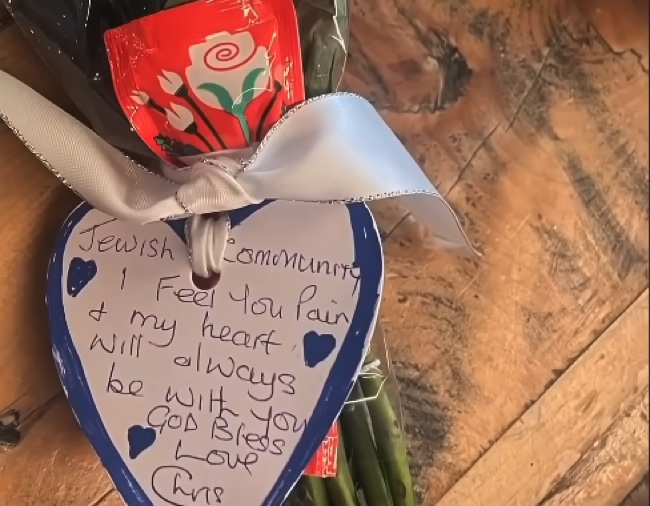 Jewish Community
I Feel You Pain
& my heart
will always
be with you
GOD Bless
Love
Chris